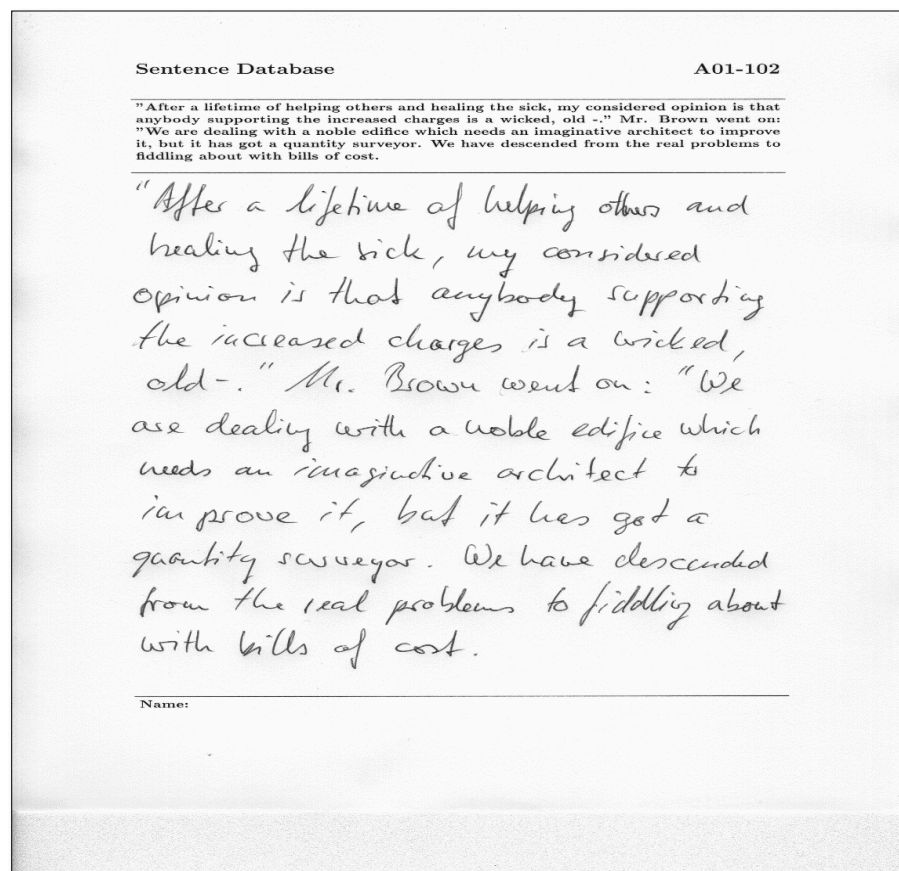 Sentence Database A01-102
"After a lifetime of helping others and healing the sick, my considered opinion is that
anybody supporting the increased charges is a wicked, old -." Mr. Brown went on:
"We are dealing with a noble edifice which needs an imaginative architect to improve
it, but it has got a quantity surveyor. We have descended from the real problems to
fiddling about with bills of cost.
"After a lifetime of helping others and
healing the sick, my considered
opinion is that anybody supporting
the increased charges is a wicked,
old -." Mr. Brown went on: "We
are dealing with a noble edifice which
needs an imaginative architect to
improve it, but it has got a
quantity surveyor. We have descended
from the real problems to fiddling about
with bills of cost.
Name: